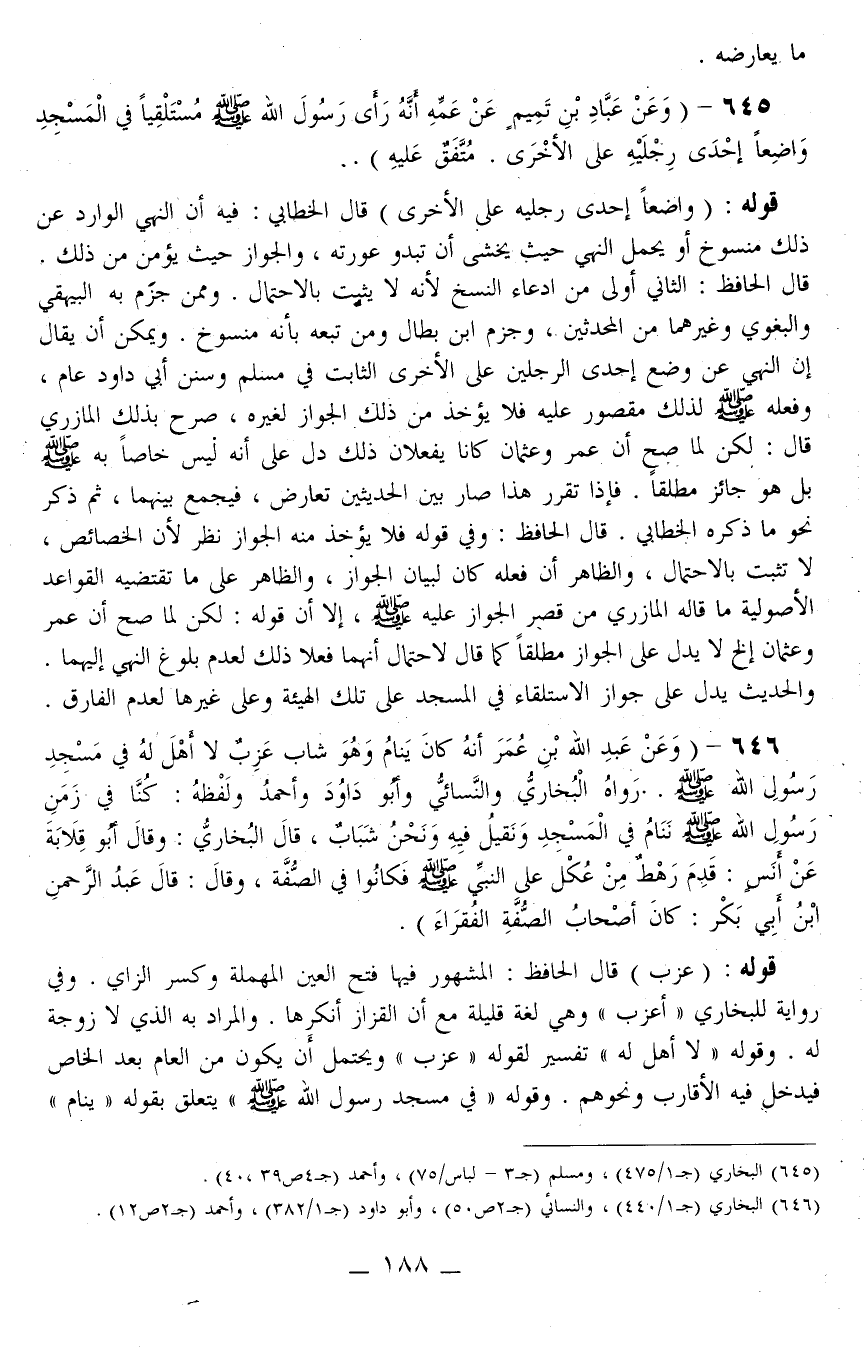 ما يعارضه .
٦٤٥ – ( وَعَنْ عَبَّادِ بْنِ تَمِيمٍ عَنْ عَمِّهِ أَنَّهُ رَأَى رَسُولَ الله ﷺ مُسْتَلْقِياً في الْمَسْجِدِ
وَاضِعاً إحْدَى رِجْلَيْهِ على الأخْرَى . مُتَّفَقٌ عَليهِ ) ..
قوله : ( واضعاً إحدى رجليه على الأخرى ) قال الخطابي : فيه أن النهي الوارد عن
ذلك منسوخ أو يحمل النهي حيث يخشى أن تبدو عورته ، والجواز حيث يؤمن من ذلك .
قال الحافظ : الثاني أولى من ادعاء النسخ لأنه لا يثبت بالاحتمال . وممن جزم به البيهقي
والبغوي وغيرهما من المحدثين ، وجزم ابن بطال ومن تبعه بأنه منسوخ . ويمكن أن يقال
إن النهي عن وضع إحدى الرجلين على الأخرى الثابت في مسلم وسنن أبي داود عام ،
وفعله ﷺ لذلك مقصور عليه فلا يؤخذ من ذلك الجواز لغيره ، صرح بذلك المازري
قال : لكن لما صح أن عمر وعثمان كانا يفعلان ذلك دل على أنه ليس خاصاً به ﷺ
بل هو جائز مطلقاً . فإذا تقرر هذا صار بين الحديثين تعارض ، فيجمع بينهما ، ثم ذكر
نحو ما ذكره الخطابي . قال الحافظ : وفي قوله فلا يؤخذ منه الجواز نظر لأن الخصائص ،
لا تثبت بالاحتمال ، والظاهر أن فعله كان لبيان الجواز ، والظاهر على ما تقتضيه القواعد
الأصولية ما قاله المازري من قصر الجواز عليه ﷺ ، إلا أن قوله : لكن لما صح أن عمر
وعثمان إلخ لا يدل على الجواز مطلقاً كما قال لاحتمال أنهما فعلا ذلك لعدم بلوغ النهي إليهما .
والحديث يدل على جواز الاستلقاء في المسجد على تلك الهيئة وعلى غيرها لعدم الفارق .
٦٤٦ – ( وَعَنْ عَبدِ الله بْنِ عُمَرَ أنهُ كانَ يَنامُ وَهُوَ شاب عَزِبٌ لا أَهْلَ لهُ في مَسْجِدِ
رَسُولِ الله ﷺ . رَواهُ الْبُخاريُّ والنَّسائيُّ وأبُو دَاوُدَ وأحمدُ ولَفْظهُ : كُنَّا في زَمَنِ
رَسُولِ الله ﷺ نَنَامُ في الْمَسْجِدِ وَنَقيلُ فيهِ وَنَحْنُ شَبَابٌ ، قالَ البُخاريُّ : وقالَ أبُو قِلَابَةَ
عَنْ أَنَسٍ : قَدِمَ رَهْطٌ مِنْ عُكْل على النبيِّ ﷺ فَكانُوا في الصُّفَّة ، وقالَ : قالَ عَبدُ الرَّحمنِ
ابْنُ أَبِي بَكْر : كانَ أصْحابُ الصُّفَّةِ الفُقرَاءَ ) .
قوله : ( عزب ) قال الحافظ : المشهور فيها فتح العين المهملة وكسر الزاي . وفي
رواية للبخاري « أعزب » وهي لغة قليلة مع أن القزاز أنكرها . والمراد به الذي لا زوجة
له . وقوله « لا أهل له » تفسير لقوله « عزب » ويحتمل أن يكون من العام بعد الخاص
فيدخل فيه الأقارب ونحوهم . وقوله « في مسجد رسول الله ﷺ » يتعلق بقوله « ينام »
(٦٤٥) البخاري (جـ١/٤٧٥) ، ومسلم (جـ٣ – لباس/٧٥) ، وأحمد (جـ٤ص٣٩ ،٤٠) .
(٦٤٦) البخاري (جـ١/٤٤٠) ، والنسائي (جـ٢ص٥٠) ، وأبو داود (جـ١/٣٨٢) ، وأحمد (جـ٢ص١٢) .
— ١٨٨ —